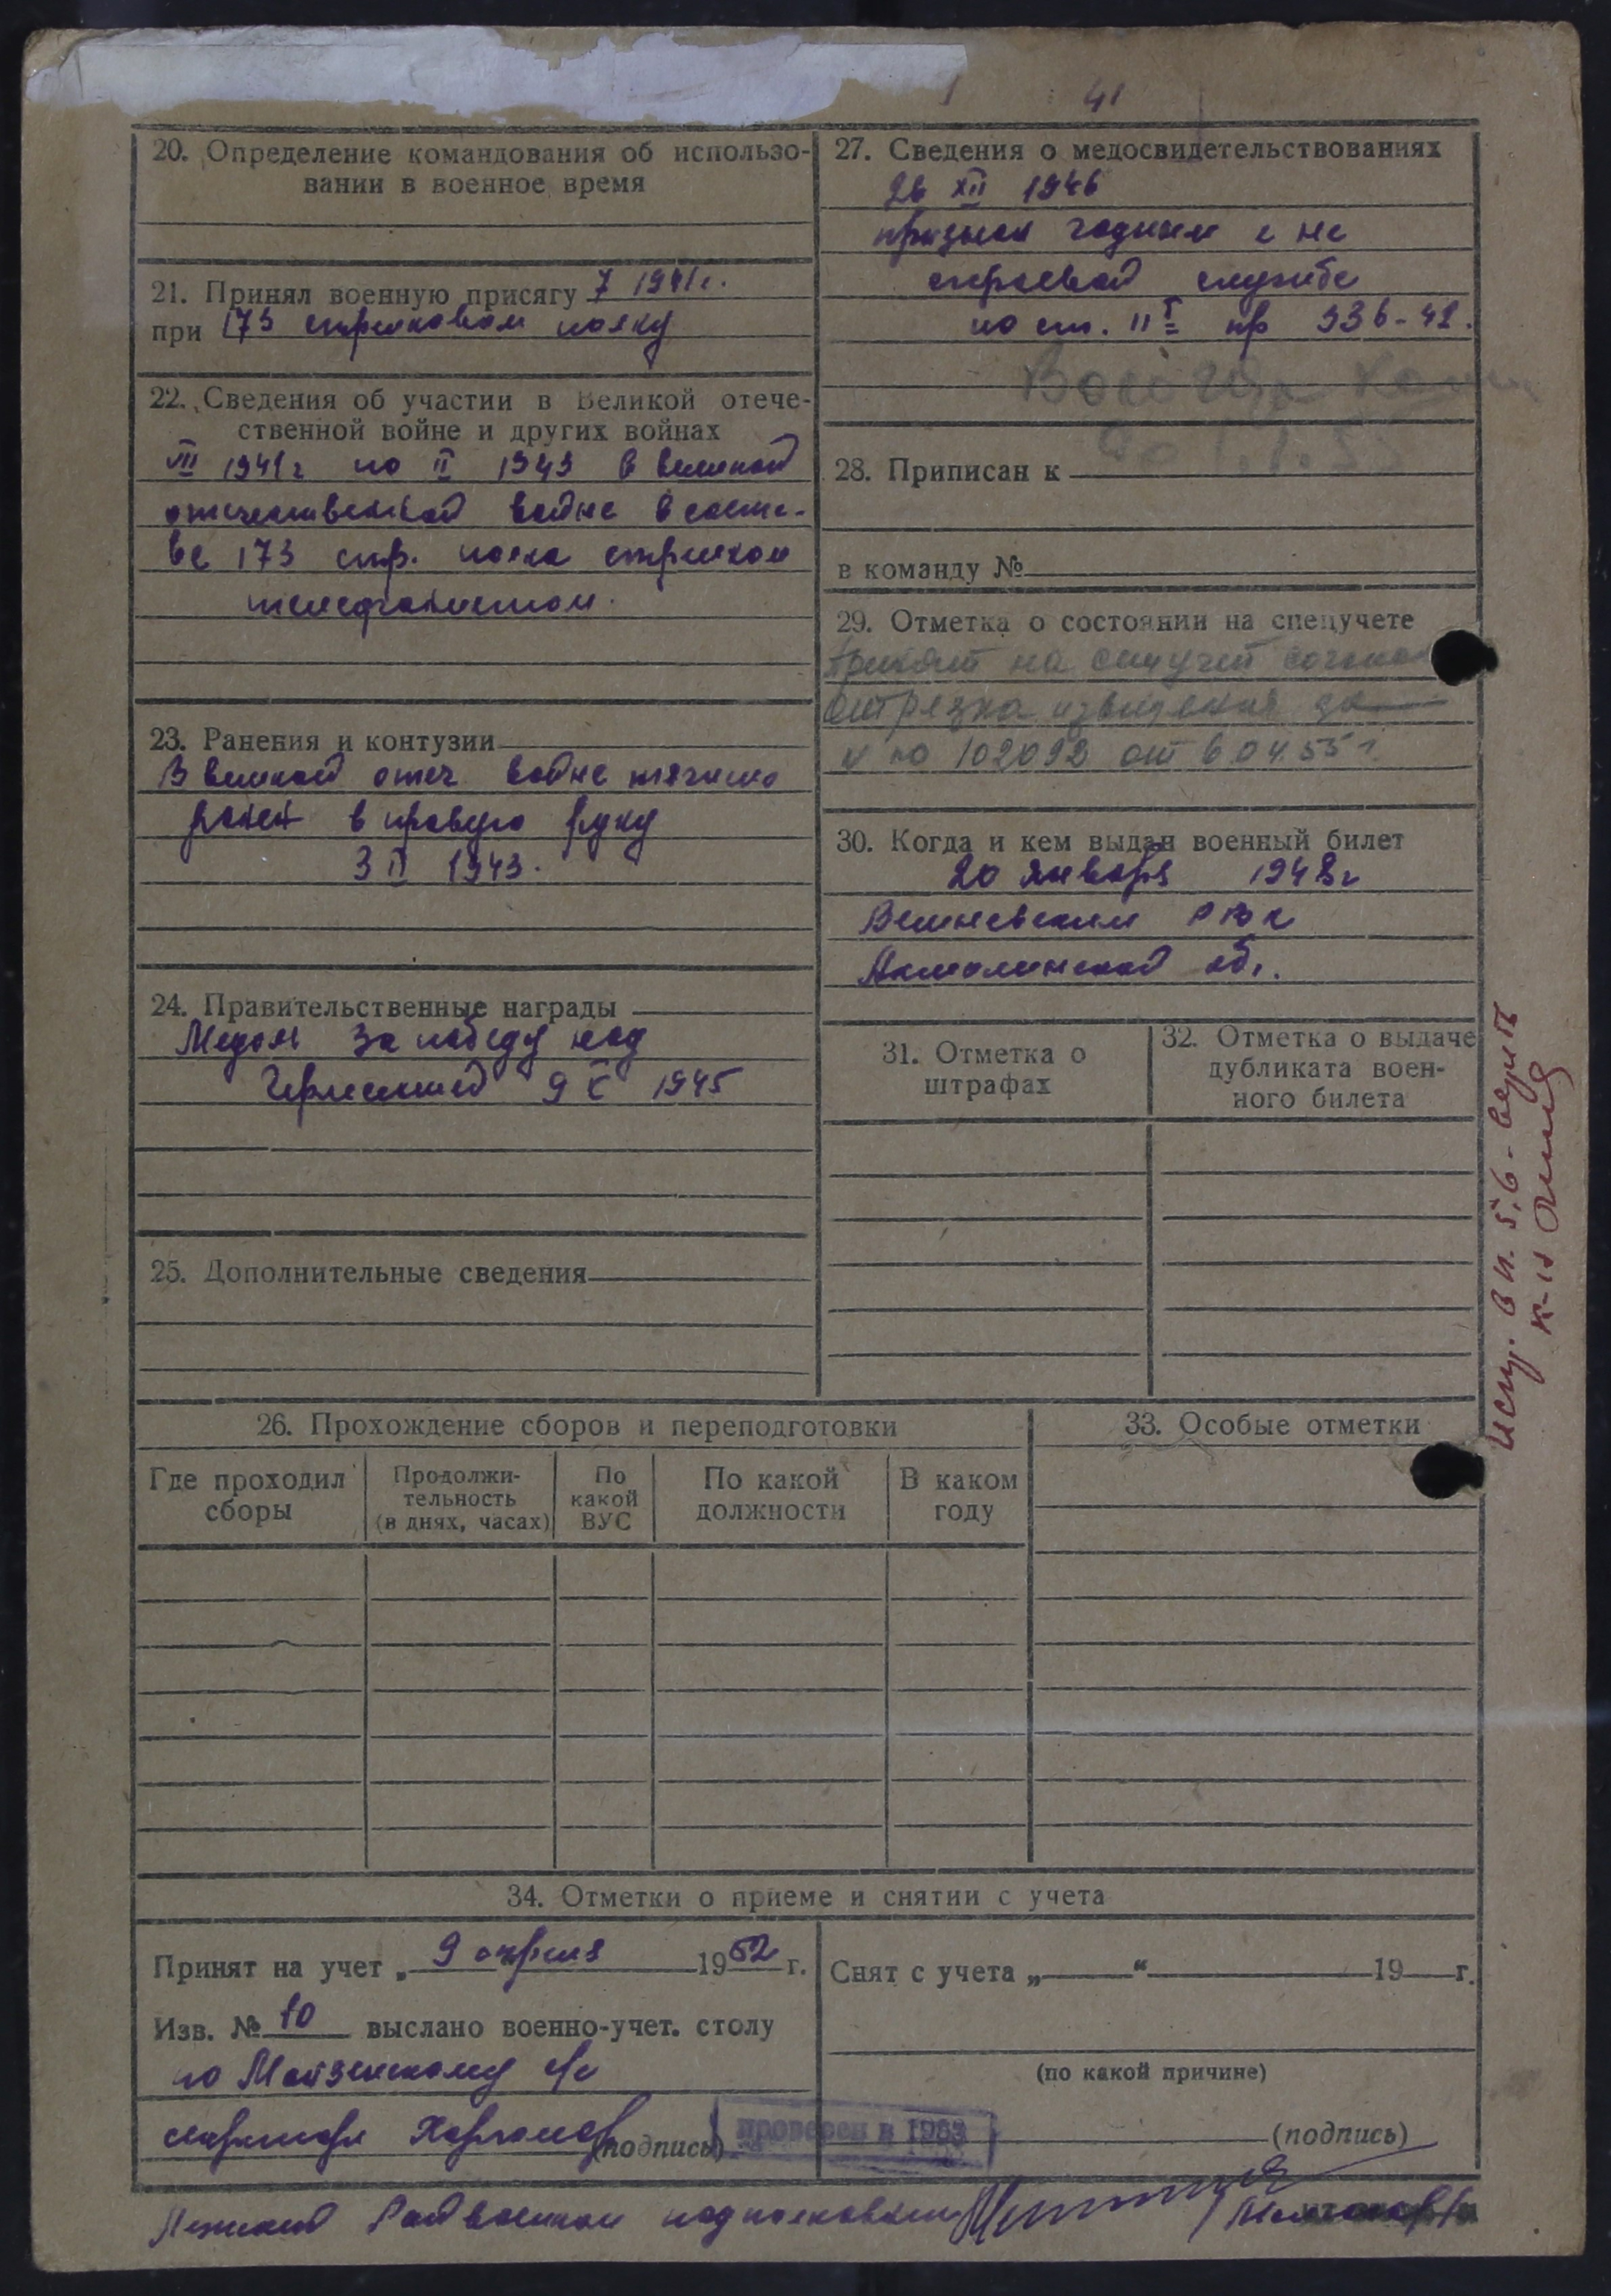 41
20. Определение командования об использо-
вании в военное время
21. Принял военную присягу 7 1941 г.
при 173 стрелковом полку
22. Сведения об участии в Великой отече-
ственной войне и других войнах
VIII 1941 г по II 1943 в великой
отечественной войне в соста-
ве 173 стр. полка стрелком
телефонистом.
23. Ранения и контузии
В великой отеч войне тяжело
ранен в правую руку
3 II 1943.
24. Правительственные награды
Медаль За победу над
Германией 9 V 1945
25. Дополнительные сведения
27. Сведения о медосвидетельствованиях
26 XII 1946
признан годным к не
строевой службе
по ст. II пр 336-42.
28. Приписан к
в команду №
29. Отметка о состоянии на спецучете
Принят на спецучет
отрезка извещения за
№ 102092 от 6.04.55 г.
30. Когда и кем выдан военный билет
20 января 1948 г
Вишневским РВК
Акмолинской обл.
31. Отметка о
штрафах
32. Отметка о выдаче
дубликата воен-
ного билета
26. Прохождение сборов и переподготовки
Где проходил
сборы
Продолжи-
тельность
(в днях, часах)
По
какой
ВУС
По какой
должности
В каком
году
33. Особые отметки
34. Отметки о приеме и снятии с учета
Принят на учет „ 9 апреля 1952 г.
Изв. № 10 выслано военно-учет. столу
по с/с
(подпись)
Снят с учета „ “ 19 г.
(по какой причине)
проверен в 1953
(подпись)
Райвоенком подполковник
Испр. в п. 5,6 - верить